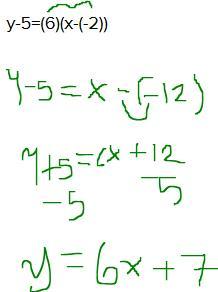 y-5=(6)(x-(-2))
y-5=x-(-12)
y+5=6x+12
-5 5
y=6x+7